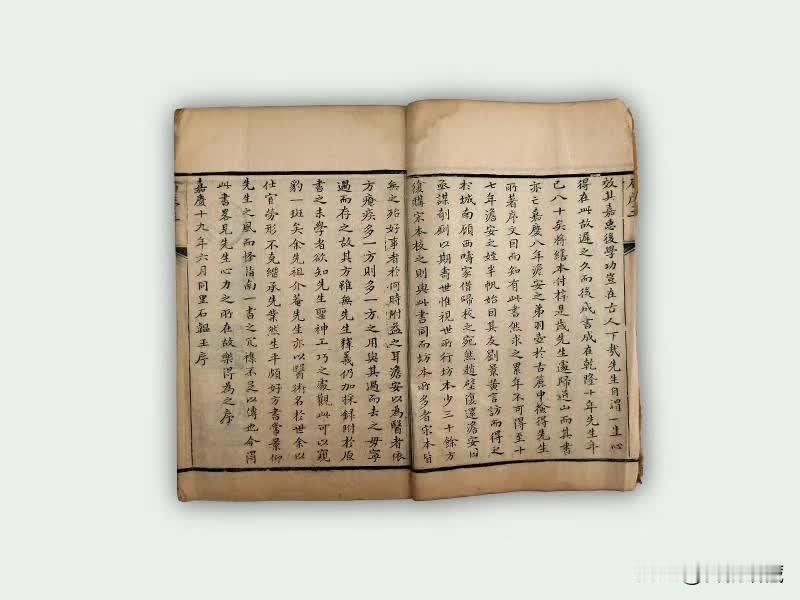 效其嘉惠後學功豈在古人下哉先生自謂一生心
得在此故遲之久而後成書成在乾隆十年先生年
已八十矣將繕本付梓是歲先生遽歸道山而其書
亦亡嘉慶八年澹安之弟羽壺於古歷中撿得先生
所著序文目而知有此書然求之累年不可得至十
七年澹安之姪半帆始目其友劉景黃言訪而得之
於城南顧西疇家借歸校之宛然趙璧復還澹安曰
亟謀剞劂以期壽世惟視世所行坊本少三十餘方
復購宋本校之則與此書同而坊本所多者宋本皆
無之殆好事者於何時附益之耳澹安以為醫者依
方療疾多一方則多一方之用與其過而去之毋寧
過而存之故其方雖無先生釋義仍加採錄附於原
書之末學者欲知先生聖神工巧之處觀此可以窺
豹一斑矣余先祖介菴先生亦以醫術名於世余以
仕宦勞形不克繼承先業然生平頗好方書常景仰
先生之風而怪指南一書之冗襍不足以傳也今得
此書畧見先生心力之所在故樂得為之序
嘉慶十九年六月同里石韞玉序